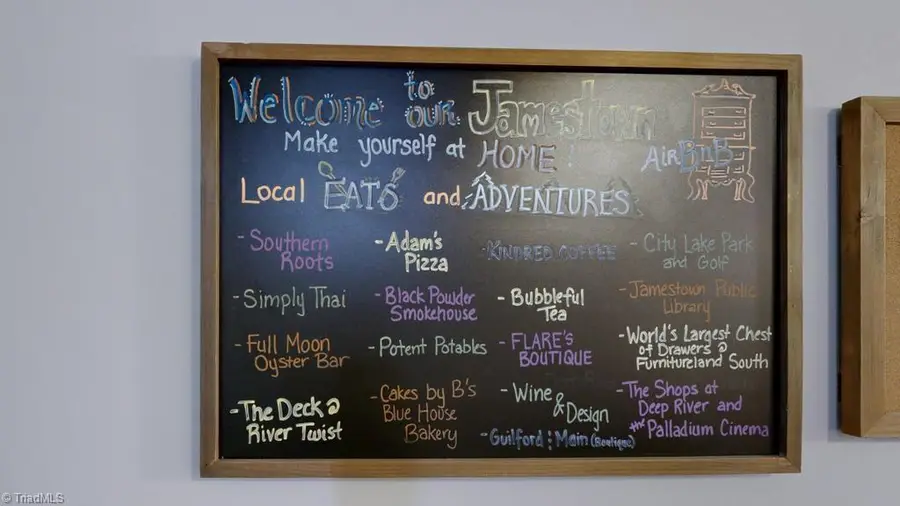 Welcome to our Jamestown
Make yourself at HOME! AirBnB
Local EATS and ADVENTURES
- Southern
Roots
- Simply Thai
- Full Moon
Oyster Bar
- The Deck @
River Twist
- Adam's
Pizza
- Black Powder
Smokehouse
- Potent Potables
- Cakes by B's
Blue House
Bakery
- KINDRED COFFEE
- Bubbleful
Tea
- FLARE'S
BOUTIQUE
- Wine
& Design
- Guilford : Main (Boutique)
- City Lake Park
and Golf
- Jamestown Public
Library
- World's Largest Chest
of Drawers @
Furnitureland South
- The Shops at
Deep River and
the Palladium Cinema
© TriadMLS